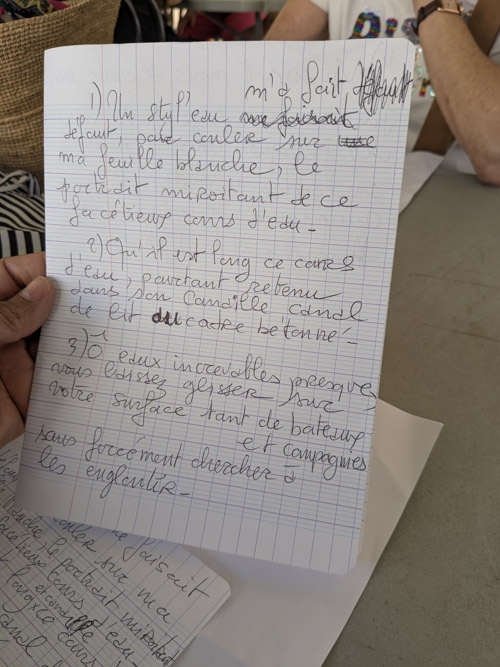 m'a fait
1) Un styl'eau me faisait
défaut, pour couler sur
ma feuille blanche, le
portrait miroitant de ce
facétieux cours d'eau -
2) Qu'il est long ce cours
d'eau, pourtant retenu
dans son Canaille canal
de lit du cadre bétonné -
3) Ô eaux increvables presque,
vous laissez glisser sur
votre surface tant de bateaux
et compagnies
sans forcément chercher à
les engloutir -
faisait
couler sur ma
le portrait miroitant
cours d'eau -